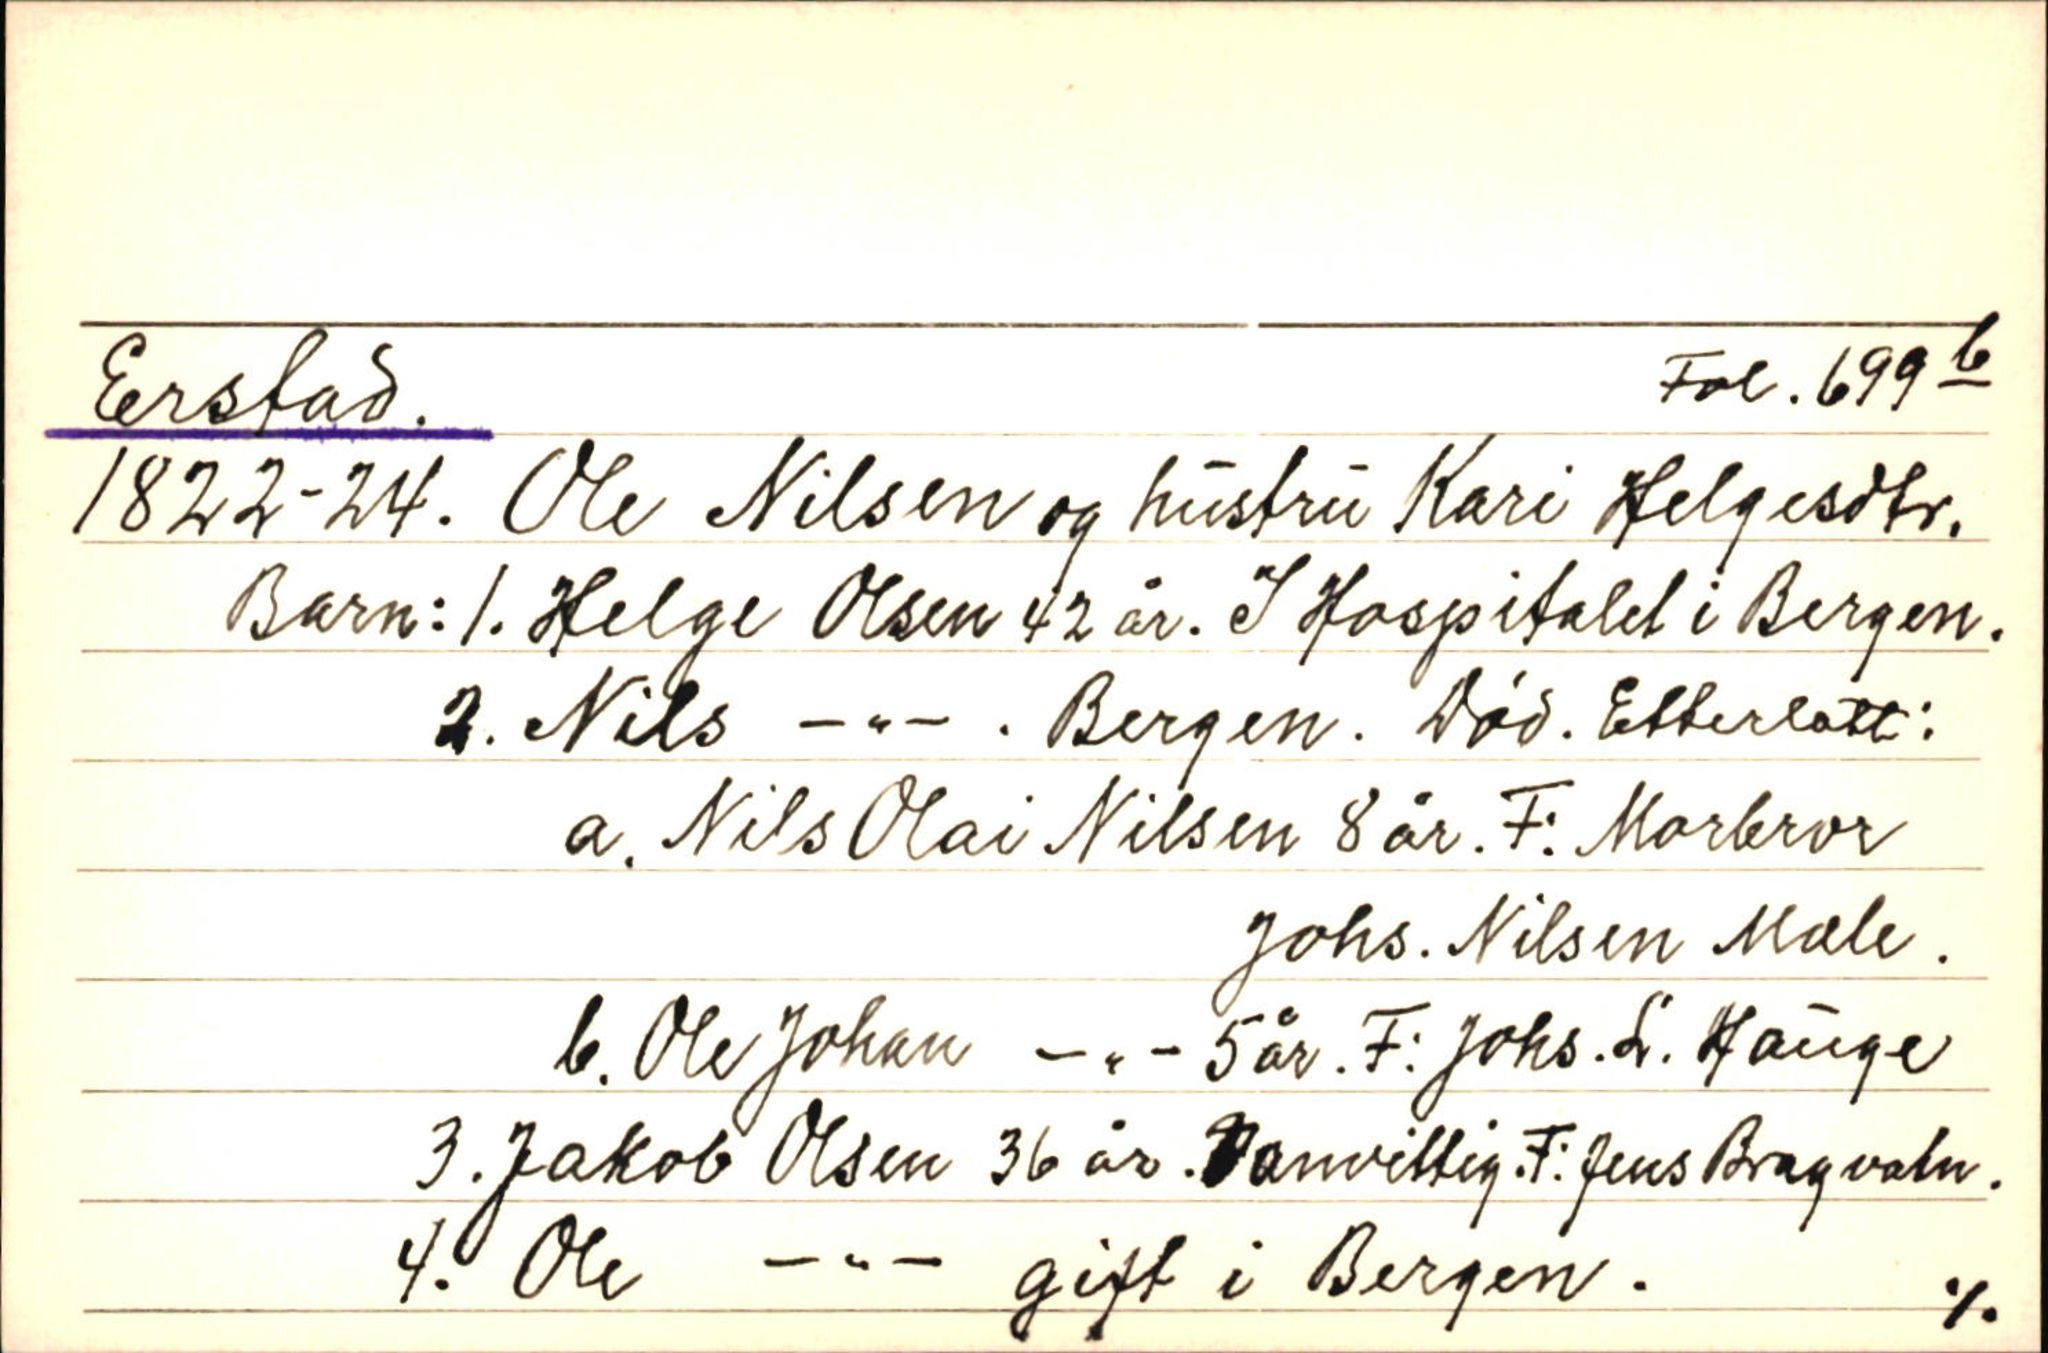 Erstad. Fol. 699 b
1822-24. Ole Nilsen og hustru Kari Helgesdtr.
Barn: 1. Helge Olsen 42 år. I Hospitalet i Bergen.
2. Nils -"- . Bergen. Död. Etterlatt:
a. Nils Olai Nilsen 8 år. F: Morbror
Johs. Nilsen Mæle.
b. Ole Johan -"- 5 år. F: Johs. L. Hauge
3. Jakob Olsen 36 år. Vanvittig. F: Jens Bragvatn.
4. Ole -"- gift i Bergen. ./.